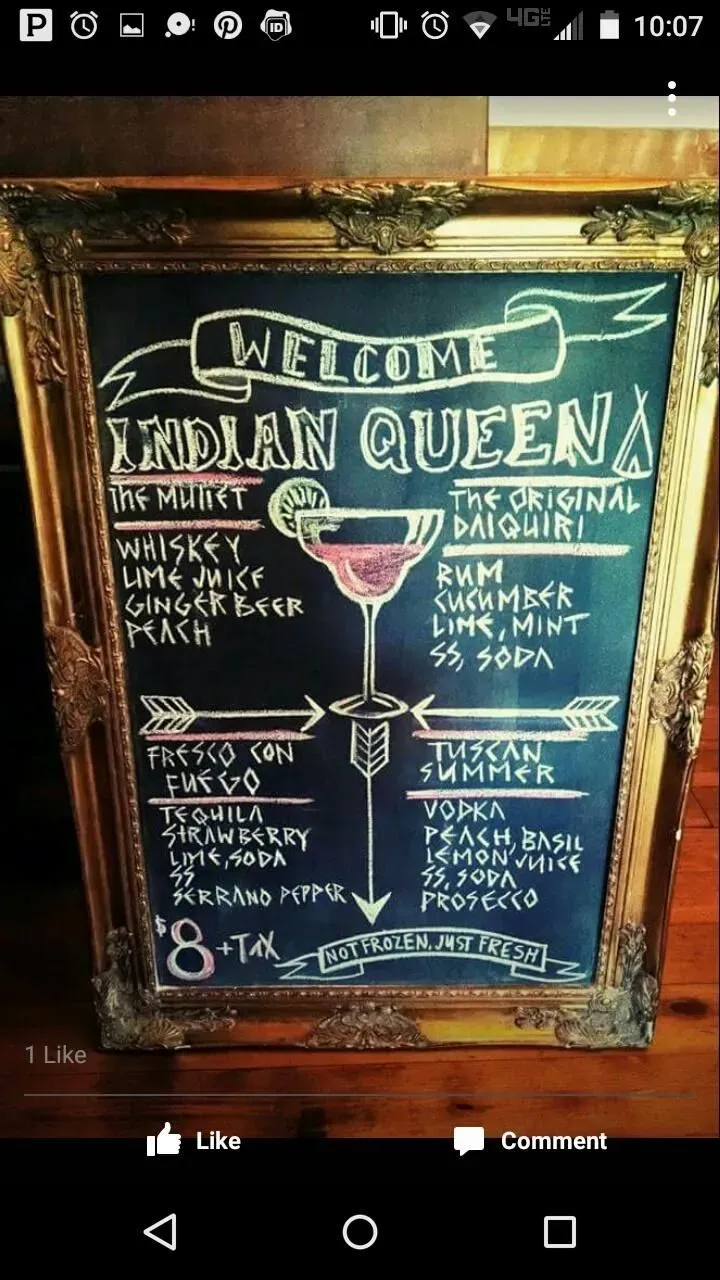 4G LTE 10:07
WELCOME
INDIAN QUEEN
THE MULLET
WHISKEY
LIME JUICE
GINGER BEER
PEACH
THE ORIGINAL
DAIQUIRI
RUM
CUCUMBER
LIME, MINT
SS, SODA
FRESCO CON
FUEGO
TEQUILA
STRAWBERRY
LIME, SODA
SS
SERRANO PEPPER
TUSCAN
SUMMER
VODKA
PEACH, BASIL
LEMON JUICE
SS, SODA
PROSECCO
$8 + TAX
NOT FROZEN, JUST FRESH
1 Like
Like Comment